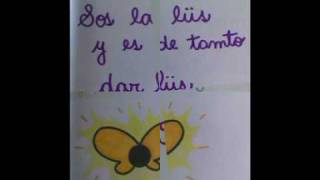 Sos la lüs
y es de tamto
dar lüs.